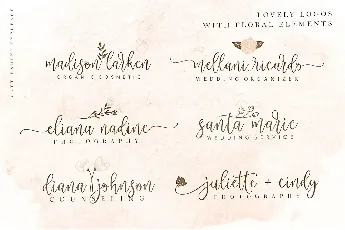 LOVELY LOGOS
WITH FLORAL ELEMENTS
madison larken
ORGANIC COSMETIC
mellani ricardo
WEDDING ORGANIZER
eliana nadine
PHOTOGRAPHY
santa marie
WEDDING SERVICE
diana johnson
COUNSELING
juliette + cindy
PHOTOGRAPHY